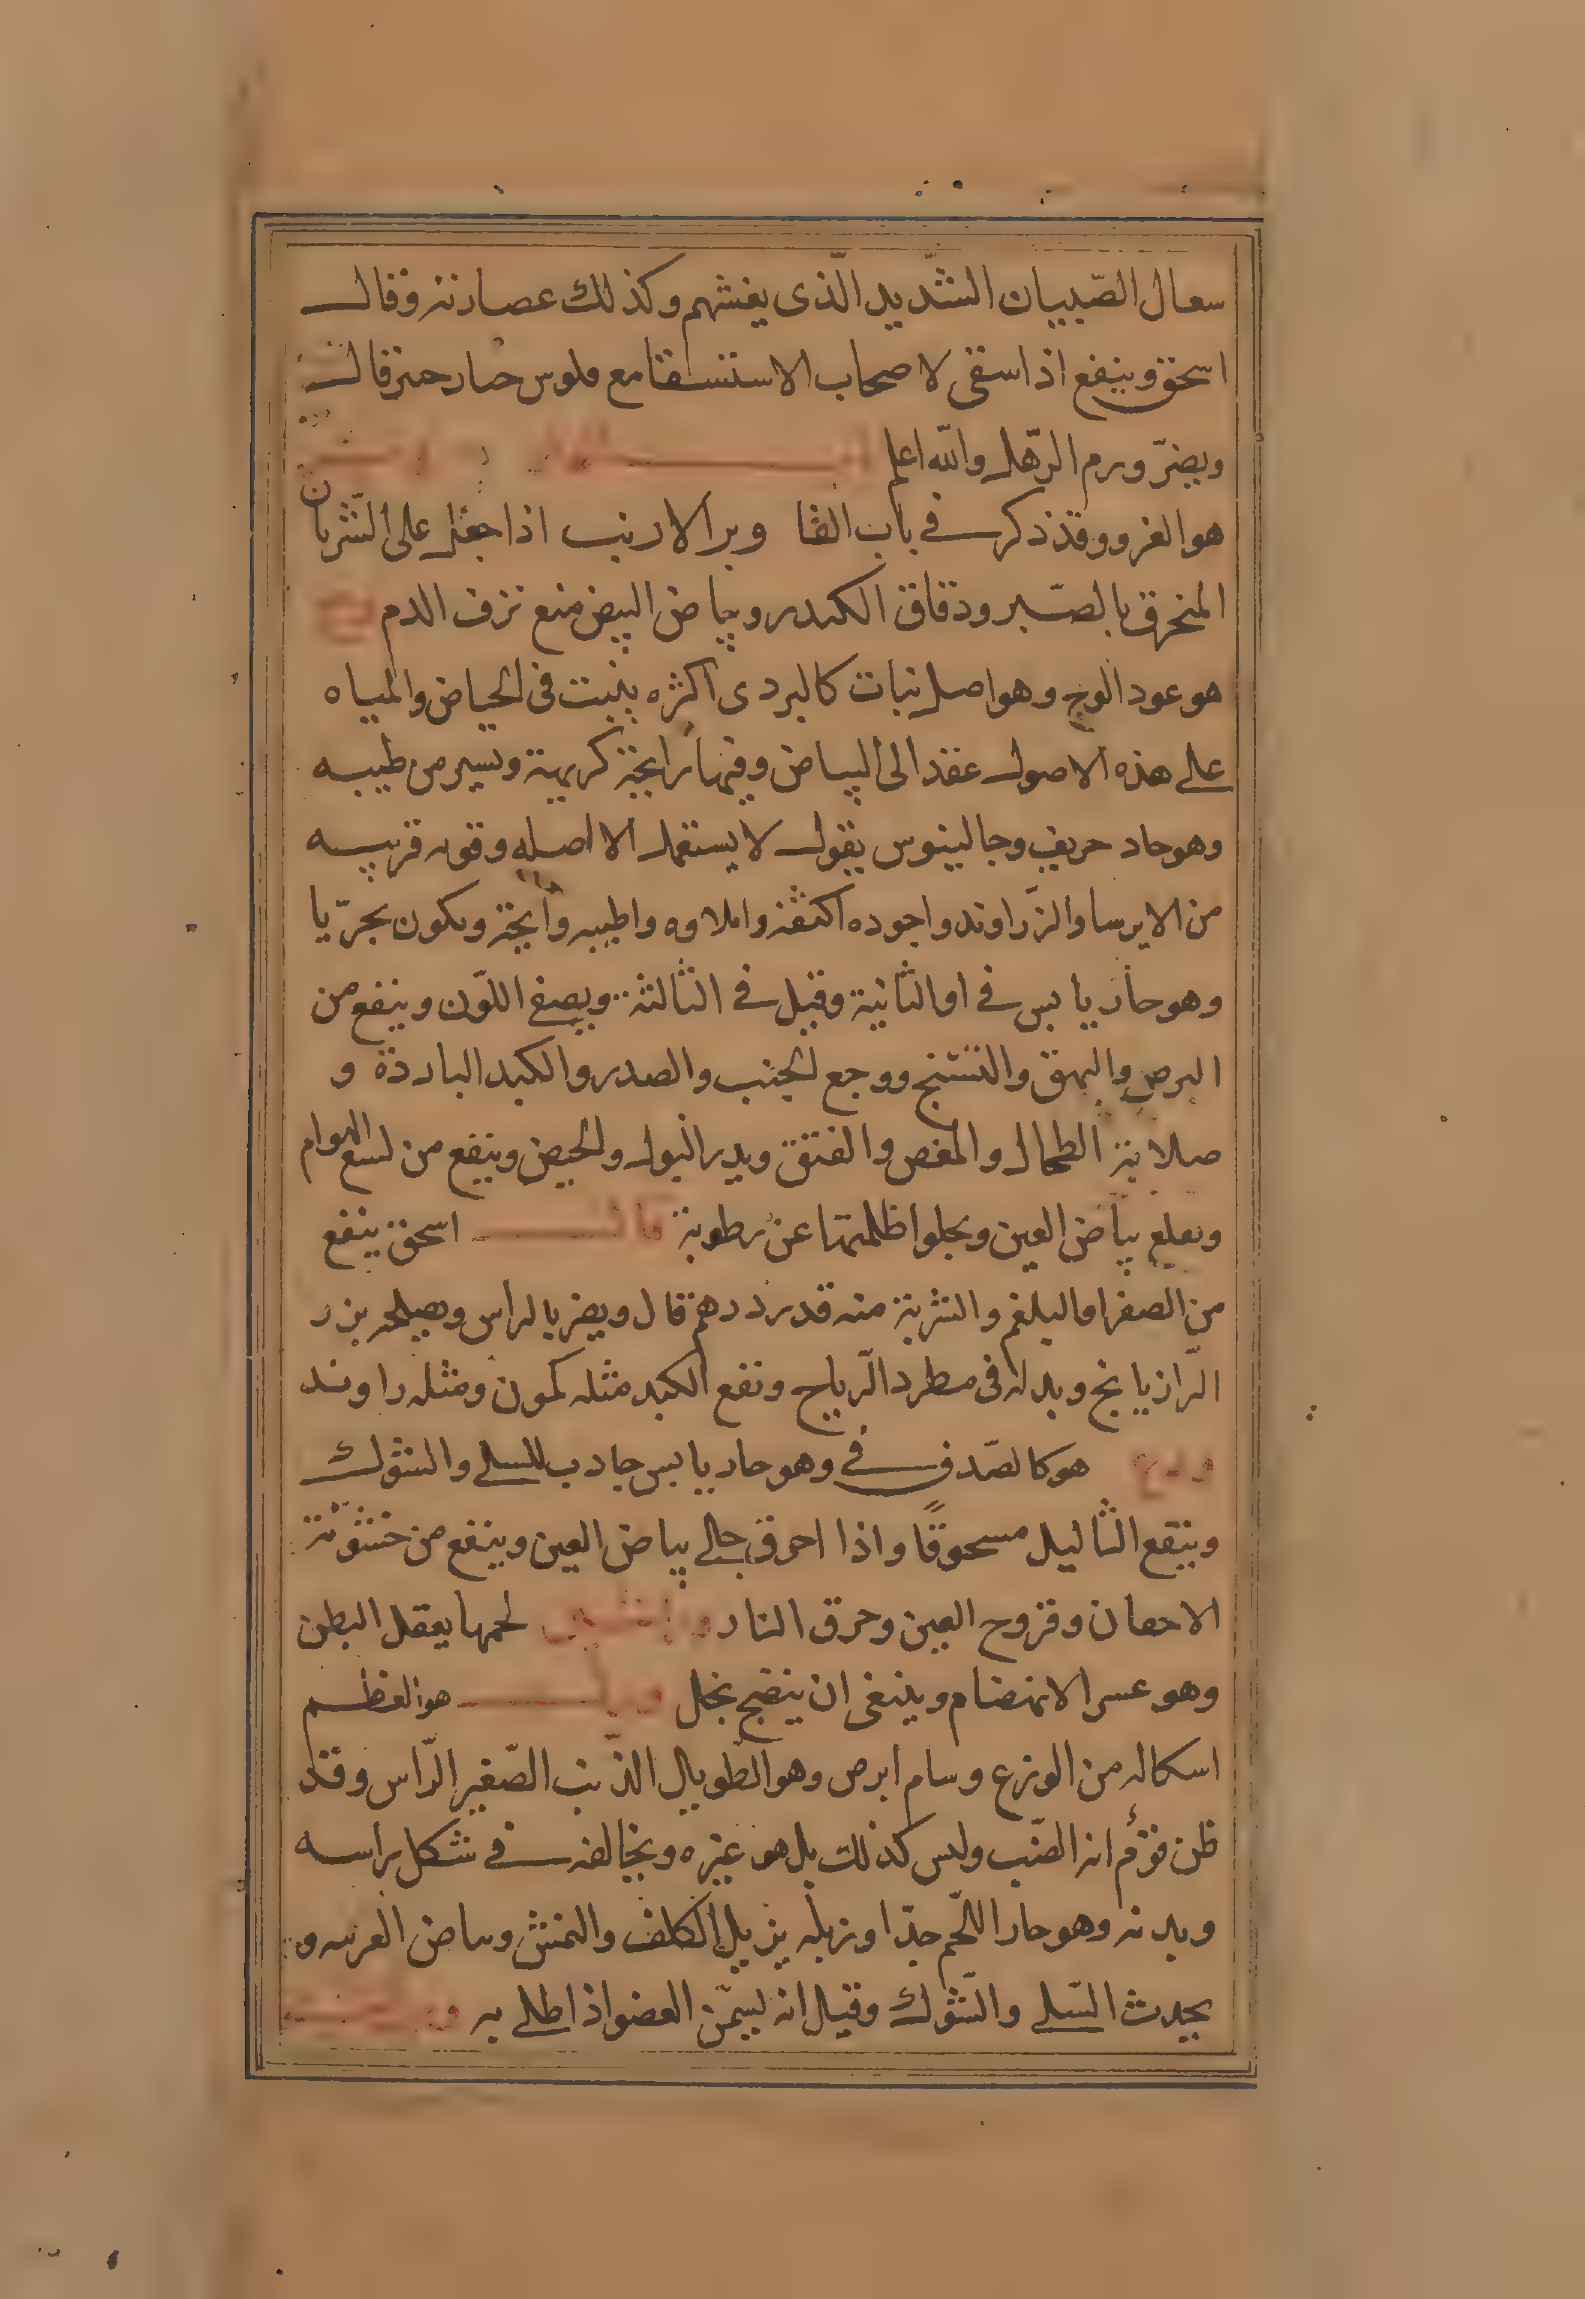 سعال الصّبيان الشّديد الّذى يغشهم وكذلك عصارته وقال
اسحق وينفع اذا سقى لاصحاب الاستسقا مع فلوس خيار جنبر قال
ويضرّ ورم الرّهل والله اعلم
هو الغر ووقد ذكر فى باب الفا وبر الارنب اذا جعل على الشّريان
المنحرق بالصّبر ودقاق الكندر وبياض البيض منع نزف الدم وج
هو عود الوج وهو اصل نبات كالبردى اكثره ينبت فى الحياض والمياه
على هذه الاصول عقد الى البياض وفيها رايحة كريهة ويسير من طيبه
وهو حاد حريف وجالينوس يقول لا يستعمل الا اصله وقوته قريبه
من الايرسا والزّراوند واجوده اكثفه واملاوه واطيبه رايحة ويكون بجرّيا
وهو حار يابس فى او الثانية وقيل فى الثالثة ويصفى اللّون وينفع من
البرص والبهق والتشنج ووجع الجنب والصدر والكبد الباردة و
صلابة الطحال والمغص والفتق ويدر البول والحيض وينفع من لسع الهوام
ويقلع بياض العين ويجلوا ظلمتها عن رطوبة قال اسحق ينفع
من الصفرا والبلغم والشربة منه قدر درهم قال ويضر بالراس ويصلحه بزر
الرّازيانج وبدله فى مطرد الرّياح ونفع الكبد مثله كمون ومثله راوند
ودع هو كالصّدف فى وهو حار يابس جادب للسلى والشوك
وينقع الثاليل مسحوقًا واذا احرق جلى بياض العين وينفع من خشونة
الاجفان وقروح العين وحرق النار لحمها يعقل البطن
وهو عسر الانهضام وينبغى ان ينضج بخل ورل هو العظيم
اسكاله من الوزع وسام ابرص وهو الطّويل الذّنب الصّغير الرّاس وقد
ظن قوم انه الضّب وليس كذلك بل هو غيره ويخالفه فى شكل براسه
وبدنه وهو حار اللّحم جدّا وزبله يزيل الكلف والنمش وبياض العربيه و
يجدث السّلى والشّوك وقيل انه يسمّن العضو اذا طلى به